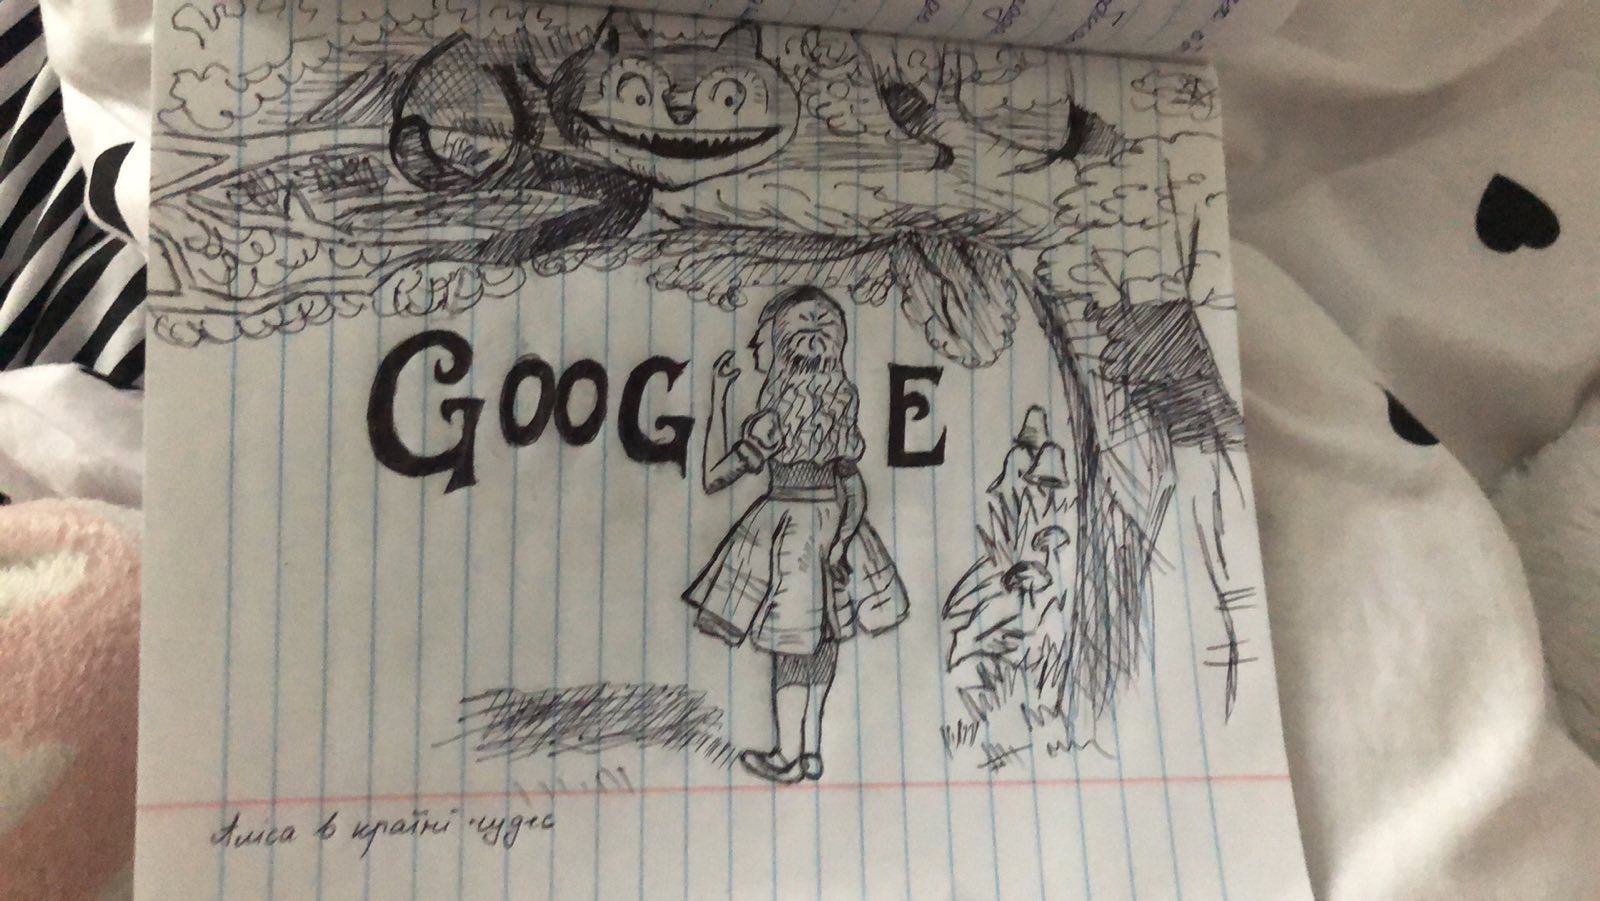 GOOG E
Аліса в країні чудес